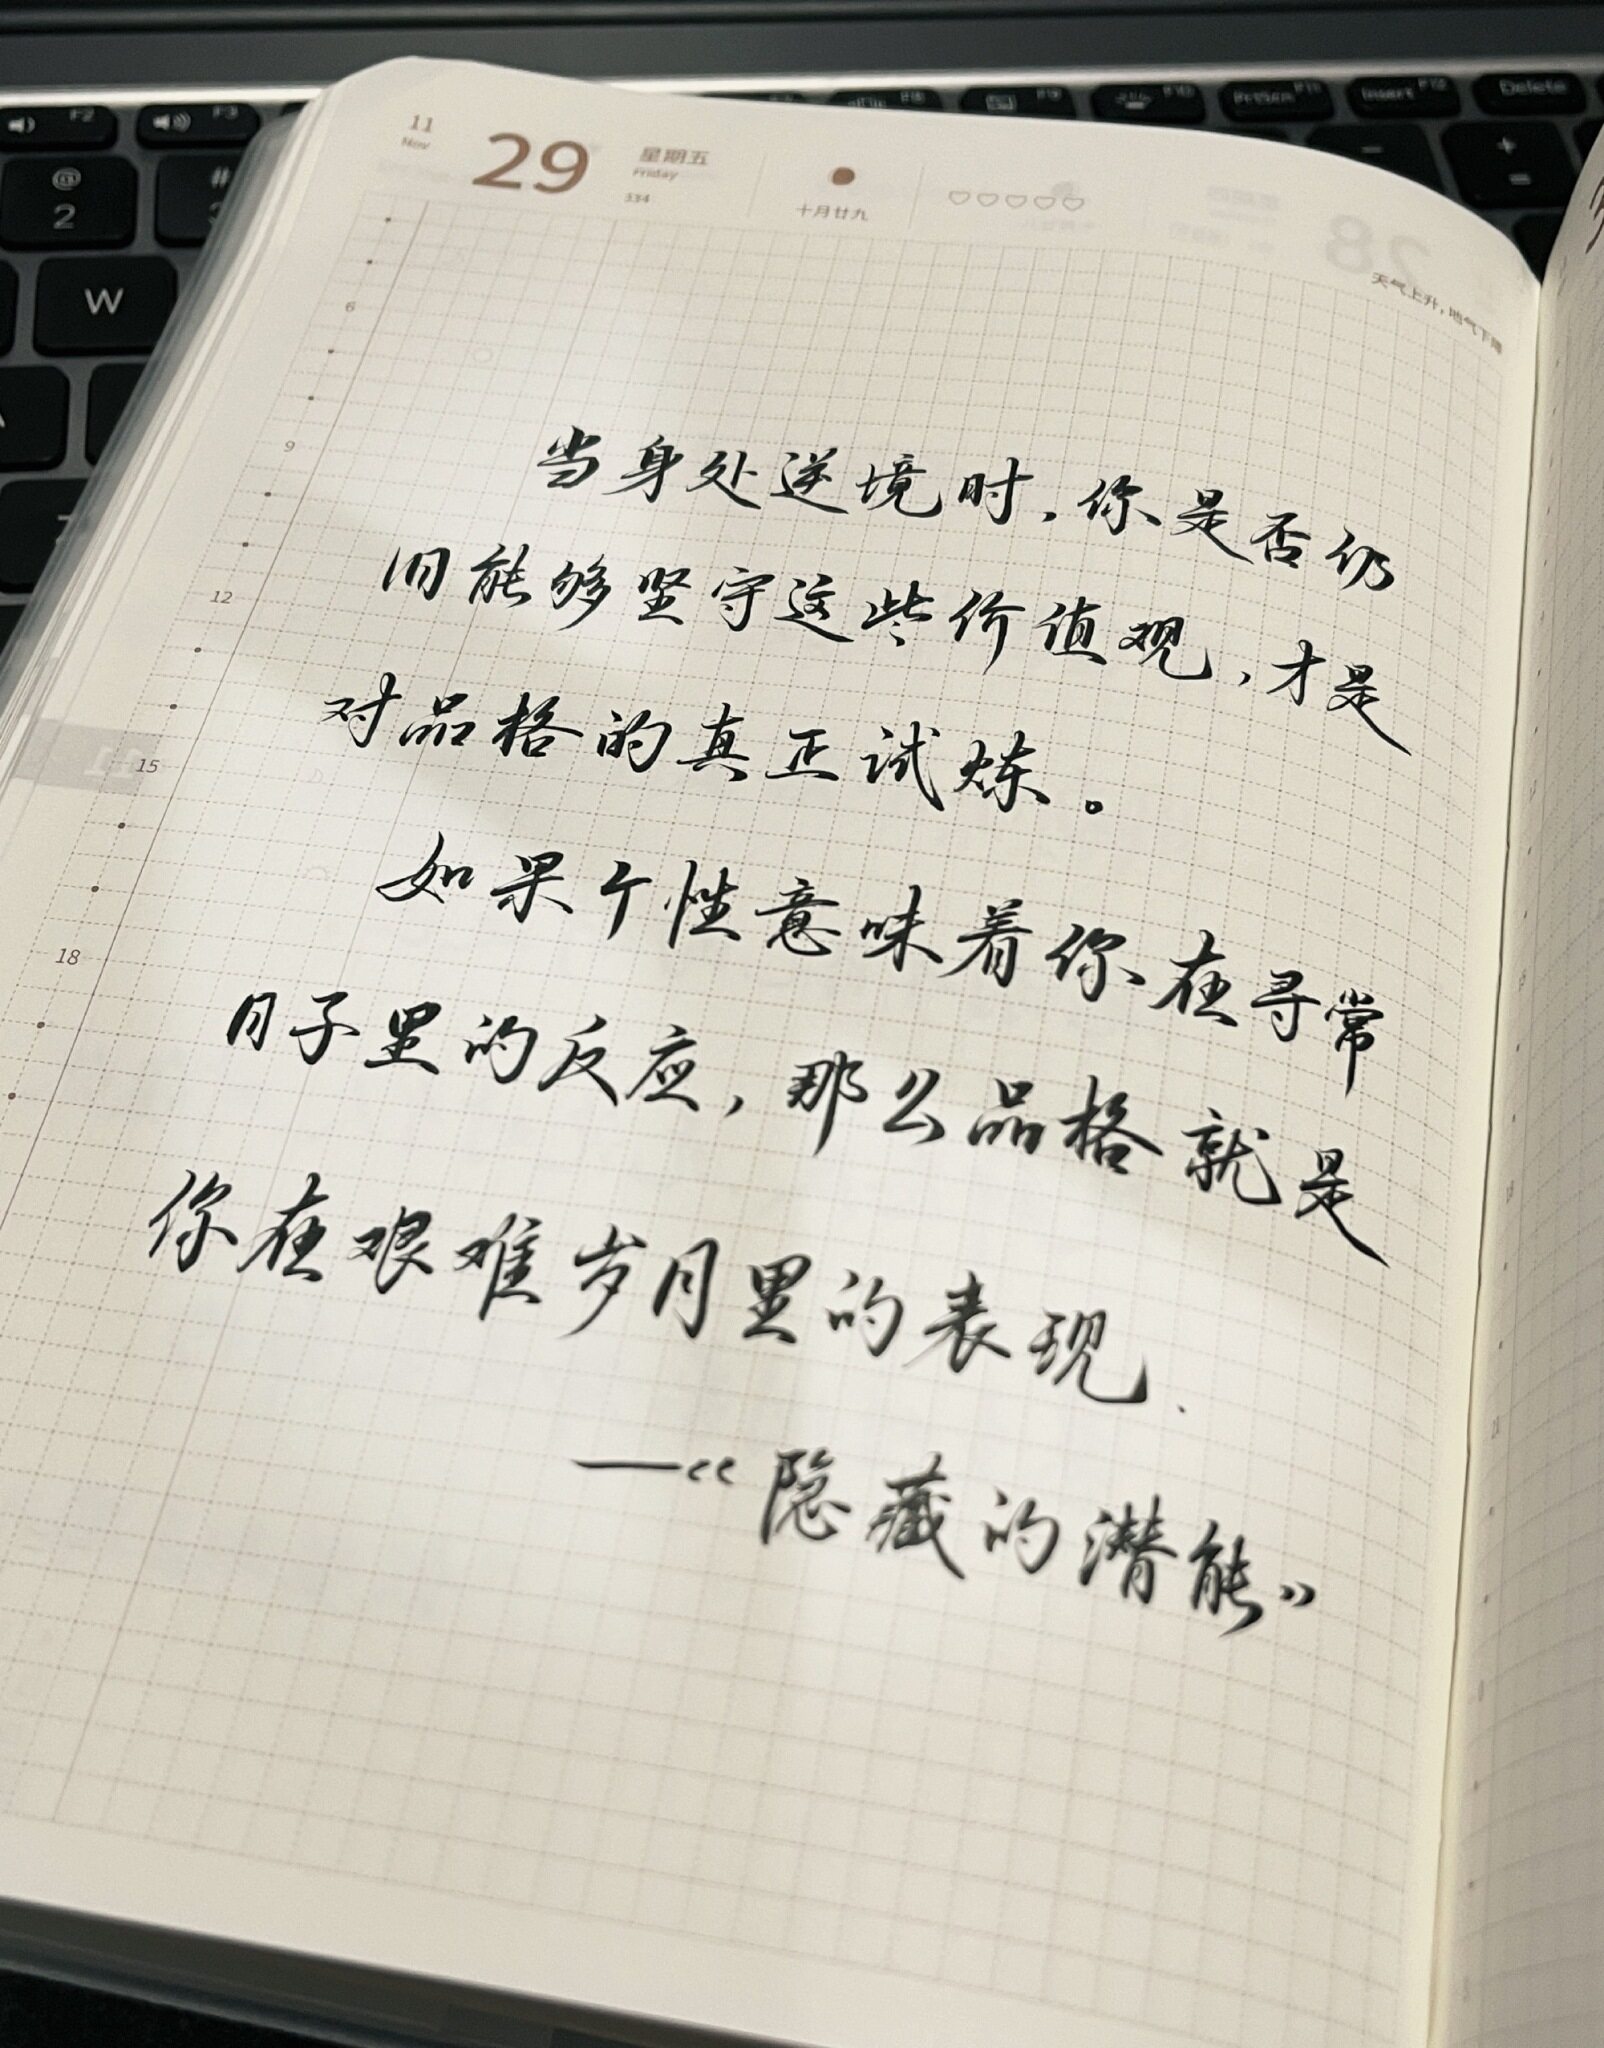 F2 F3 F8 F9 F10 PrtScn F11 Insert F12 Delete
@ 2 # - + =
W
11 Nov 29 星期五 Friday 334 十月廿九
28
天气上升,地气下降
6
9
12
15
18
11
当身处逆境时,你是否仍
旧能够坚守这些价值观,才是
对品格的真正试炼。
如果个性意味着你在寻常
日子里的反应,那么品格就是
你在艰难岁月里的表现.
—《隐藏的潜能》